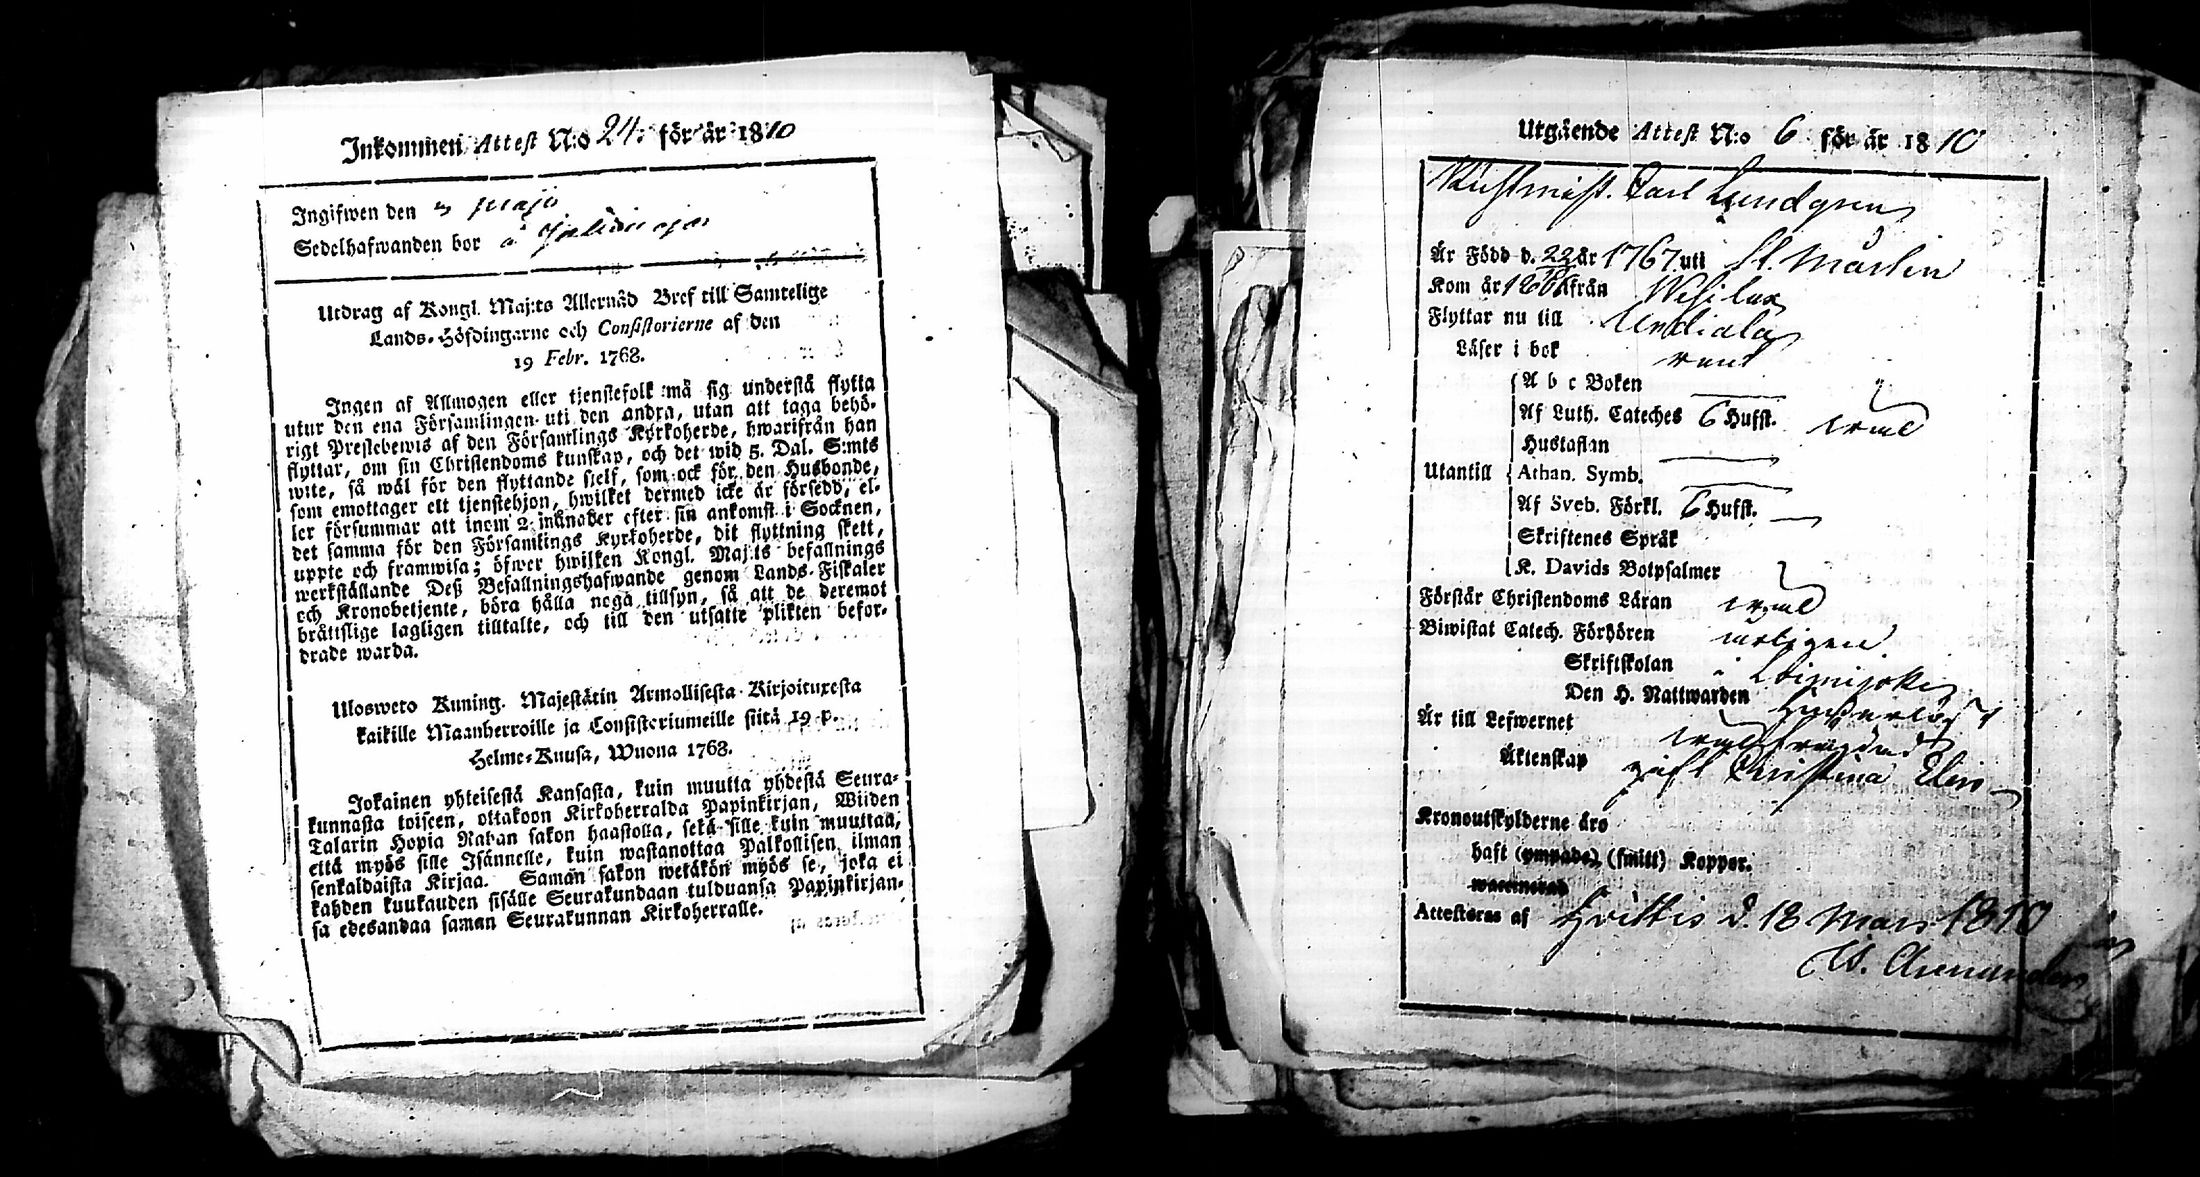 Inkommen Attest N:o 24. för år 1810
Ingifwen den 5 Majo
Sedelhafwanden bor å
Utdrag af Kongl. Maj:ts Allernåd Bref till Samtelige
Lands-Höfdingarne och Consistorierne af den
19 Febr. 1768.
Ingen af Allmogen eller tjenstefolk må sig understå flytta
utur den ena Församlingen uti den andra, utan att taga behö-
rigt Prestebewis af den Församlings Kyrkoherde, hwarifrån han
flyttar, om sin Christendoms kunskap, och det wid 5. Dal. S:mts
wite, så wäl för den flyttande sielf, som ock för den Husbonde,
som emottager ett tjenstehjon, hwilket dermed icke är försedd, el-
ler försummar att inom 2 månader efter sin ankomst i Socknen,
det samma för den Församlings Kyrkoherde, dit flyttning skett,
uppte och framwisa; öfwer hwilken Kongl. Maj:ts befallnings
werkställande Deß Befallningshafwande genom Lands-Fiskaler
och Kronobetjente, böra hålla noga tillsyn, så att de deremot
bråttslige lagligen tilltalte, och till den utsatte plikten befor-
drade warda.
Ulosweto Kuning. Majestätin Armollisesta Kirjoituxesta
kaikille Maanherroille ja Consistoriumeille siitä 19 p.
Helme-Kuusa, Wuona 1768.
Jokainen yhteisestä Kansasta, kuin muutta yhdestä Seura-
kunnasta toiseen, ottakoon Kirkoherralda Papinkirjan, Wiiden
Talarin Hopia Rahan sakon haastolla, sekä sille kuin muuttaa,
että myös sille Isännelle, kuin wastanottaa Palkollisen ilman
senkaldaista Kirjaa. Saman sakon wetäkön myös se, joka ei
kahden kuukauden sisälle Seurakundaan tulduansa Papinkirjan-
sa edesandaa saman Seurakunnan Kirkoherralle.
Utgående Attest N:o 6 för år 1810
Carl Lundgren
Är Född d. 22 år 1767 uti St. Mårtin
Kom år från Wesilax
Flyttar nu till Urdiala
Läser i bok rent
A b c Boken
Af Luth. Cateches 6 Hufst.
Hustaflan
Utantill Athan. Symb.
Af Sveb. Förkl. 6 Hufst.
Skriftenes Språk
K. Davids Botpsalmer
Förstår Christendoms Läran
Biwistat Catech. Förhören
Skriftskolan i Loimijoki
Den H. Nattwarden
Är till Lefwernet
Äktenskap gift Christina Elin
Kronoutskylderne äro
haft (ympade) (smitt) Koppor.
waccinerad
Attesteras af Hvittis d. 18 Mars 1810